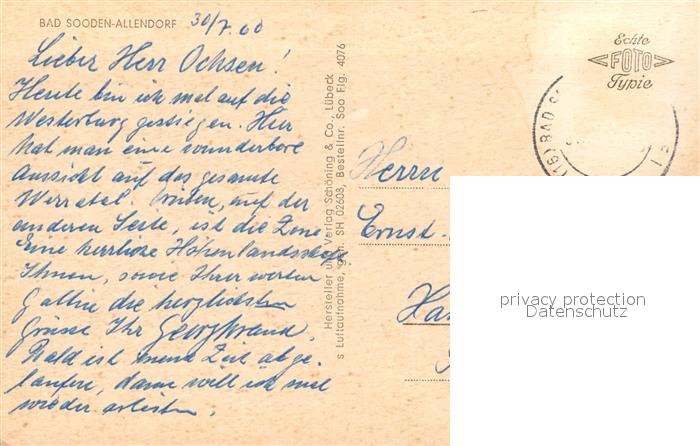 BAD SOODEN-ALLENDORF
30/7.60
Lieber Herr Ochsen!
Heute bin ich mal auf die
Westerburg gestiegen. Hier
hat man eine wunderbare
Aussicht auf das gesamte
Werratal. Drüben, auf der
anderen Seite, ist die Zone
Eine herrliche Höhenlandschaft.
Ihnen, sowie Ihrer werten
Gattin die herzlichsten
Grüsse Ihr
Bald ist meine Zeit abge-
laufen, dann will ich mal
wieder arbeiten.
Hersteller und Verlag Schöning & Co., Lübeck
s Luftaufnahme, SH 02608, Bestellnr. Soo Flg. 4076
Echte
FOTO
Typie
(16) BAD S
Herrn
Ernst-
Ha
privacy protection
Datenschutz